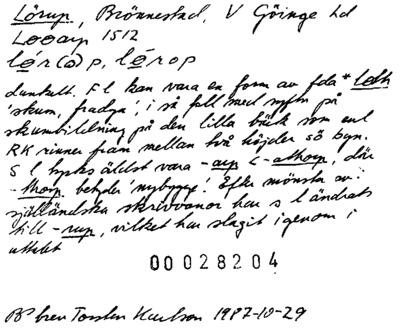 Lörup, Brönnestad, V Göinge hd
Looarp 1512
lér(ə)p, lérop
dunkelt. F l kan vara en form av fda *lodh
'skum, fradga', i så fall med syftn på
skumbildning på den lilla bäck som enl
RK rinner fram mellan två höjder så byn.
S l tycks äldst vara -arp < -athorp, där
-thorp betyder 'nybygge'. Efter mönster av
själländska skrivvanor har s l ändrats
till -rup, vilket har slagit igenom i
uttalet
00028204
BP brev Torsten Karlson 1987-10-29